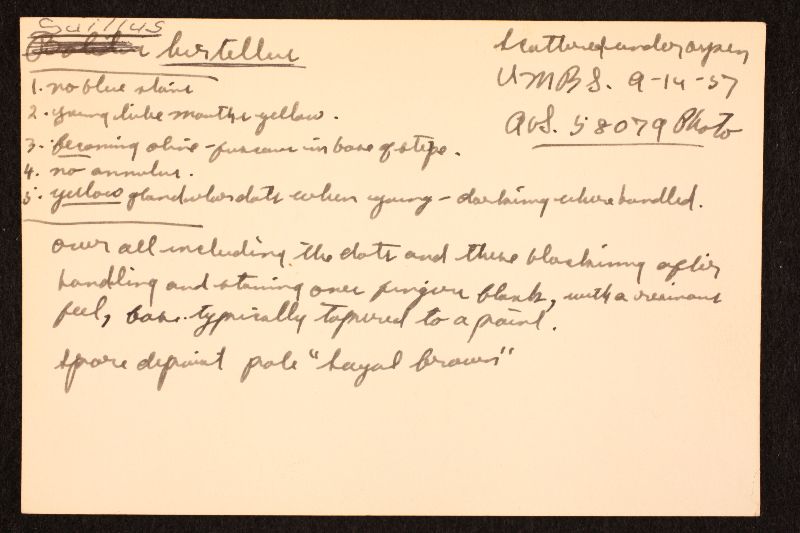 Suillus
hirtellus
Scattered under aspen
UMBS. 9-14-57
AHS. 58079 Photo
1. no blue stain
2. young tube mouths yellow.
3. Becoming olive-fuscous in base of stipe.
4. no annulus.
5. yellow glandular dots when young - darkening where handled.
over all including the dots and these blackening after
handling and staining ones fingers black, with a resinous
feel, base typically tapered to a point.
Spore deposit pale "Sayal brown"